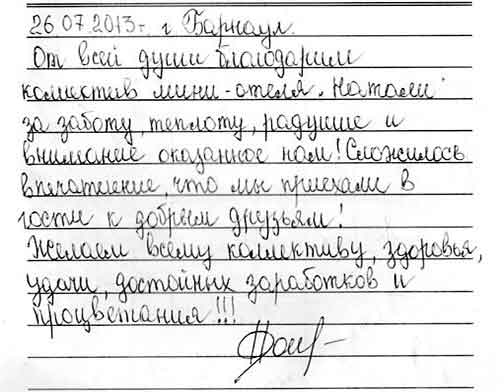 26.07.2013г. г Барнаул.
От всей души благодарим
коллектив мини-отеля "Натали"
за заботу, теплоту, радушие и
внимание оказанное нам! Сложилось
впечатление, что мы приехали в
гости к добрым друзьям!
Желаем всему коллективу, здоровья,
удачи, достойных заработков и
процветания!!!